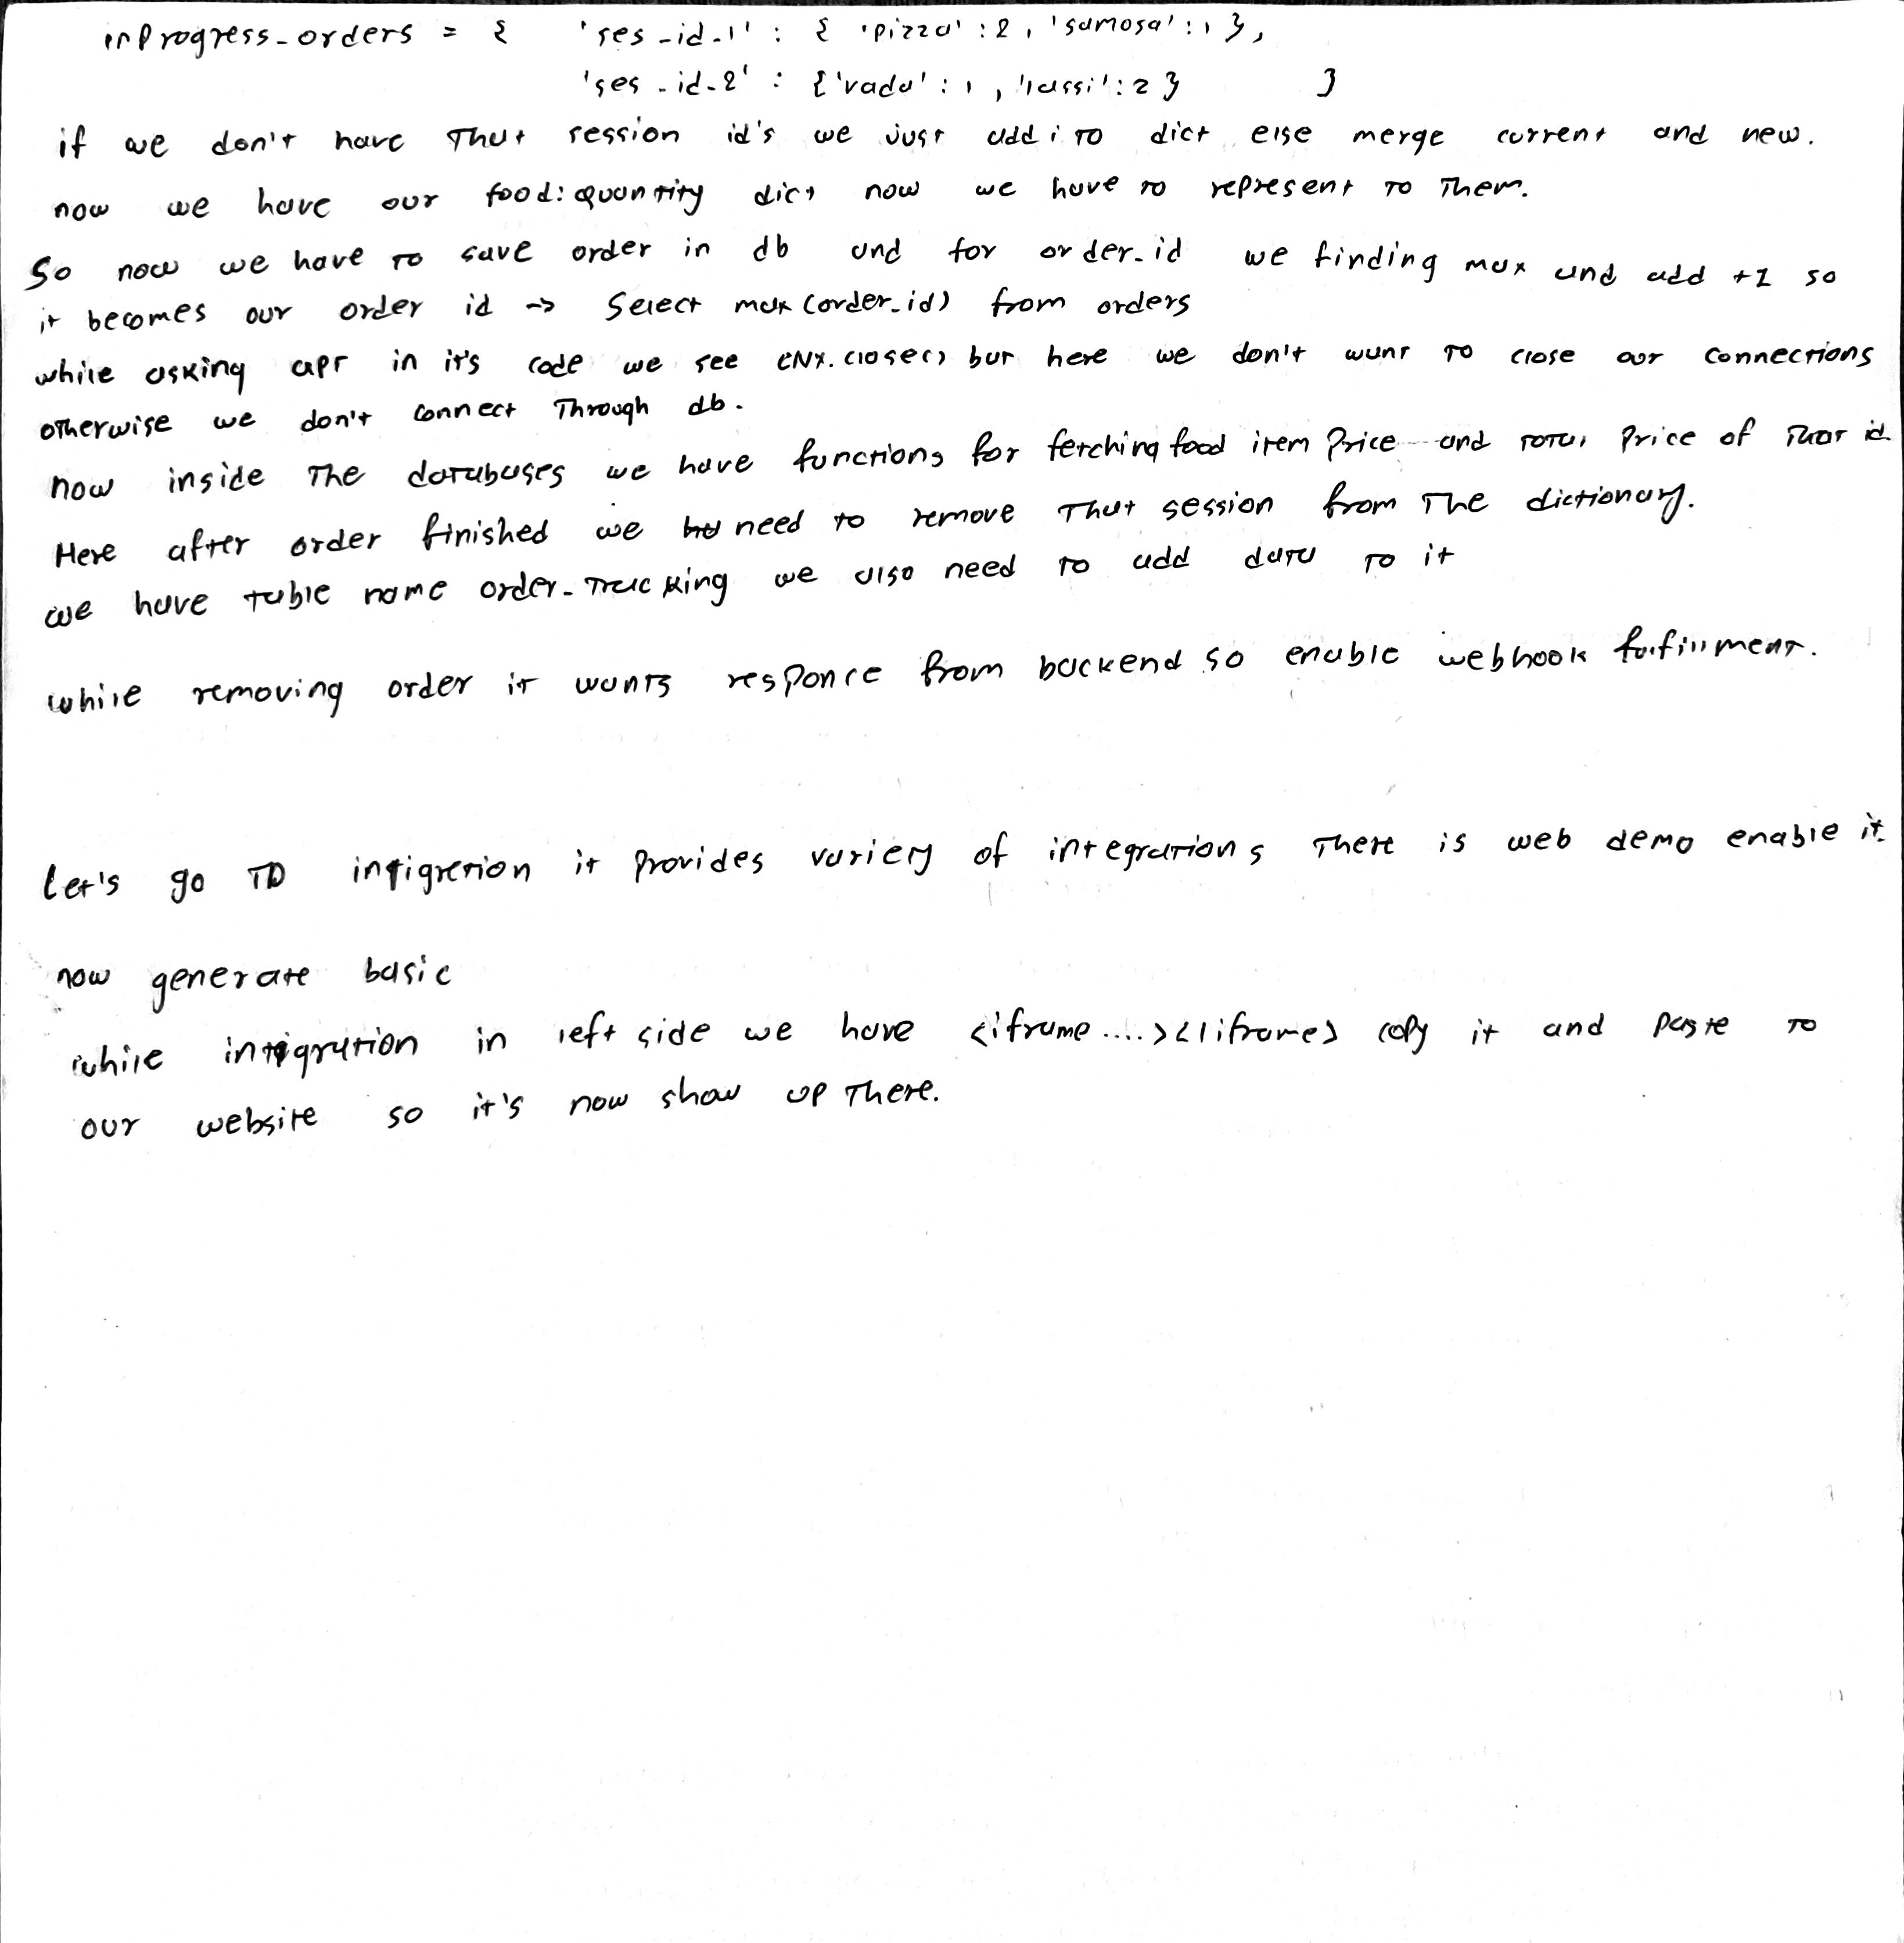 inprogress_orders = { 'ses_id_1' : { 'pizza' : 2, 'samosa' : 1 },
'ses_id_2' : {'vada' : 1 , 'lassi' : 2 } }
if we don't have That session id's we just add i to dict else merge current and new.
now we have our food:quantity dict now we have to represent to Them.
So now we have to save order in db and for order_id we finding max and add +1 so
it becomes our order id -> Select max(order_id) from orders
while asking gpt in it's code we see cnx.close() but here we don't want to close our connections
otherwise we don't connect Through db.
now inside The databases we have functions for fetching food item price and total price of That id.
Here after order finished we need to remove That session from The dictionary.
we have table name order_tracking we also need to add data to it
while removing order it wants responce from backend so enable webhook fulfillment.
Let's go TO intigretion it provides variety of integrations There is web demo enable it.
now generate basic
while intigration in left side we have <iframe....></iframe> copy it and paste to
our website so it's now show up There.